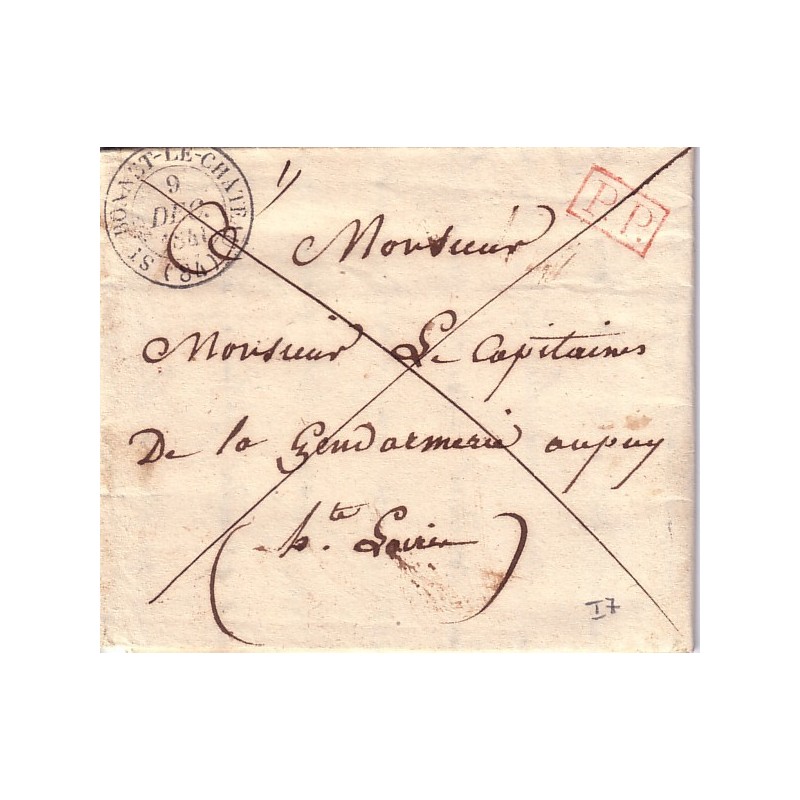 ST BONNET-LE-CHATEAU (84)
9
DEC.
1841
P.P.
Monsieur
Monsieur Le Capitaine
De la Gendarmerie au puy
(h.te Loire)
I7